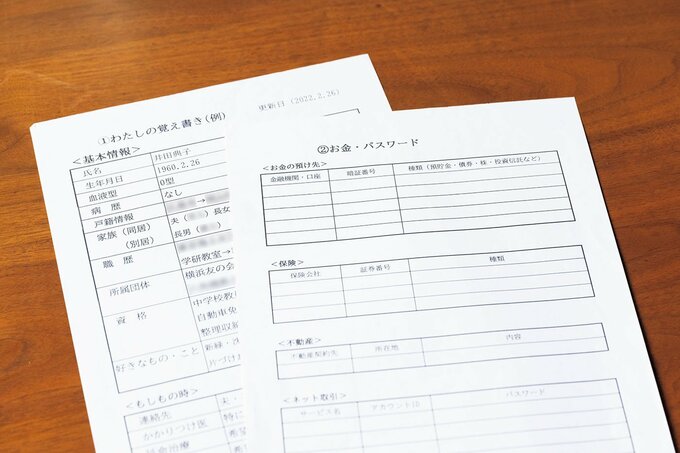 ①わたしの覚え書き(例)
更新日(2022.2.26)
<基本情報>
氏名 井田典子
生年月日 1960.2.26
血液型 O型
病歴 なし
戸籍情報 →
家族(同居) 夫( )長女
(別居) 長男(
職歴 学研教室→
所属団体 横浜友の会
資格 中学校教
自動車免
整理収納
好きなもの・こと 新緑・洗
片づけ
<もしもの時>
連絡先 夫・
かかりつけ医 特に
延命治療 希望
②お金・パスワード
<お金の預け先>
金融機関・口座 暗証番号 種類(預貯金・債券・株・投資信託など)
<保険>
保険会社 証券番号 種類
<不動産>
不動産契約先 所在地 内容
<ネット取引>
サービス名 アカウントID パスワード